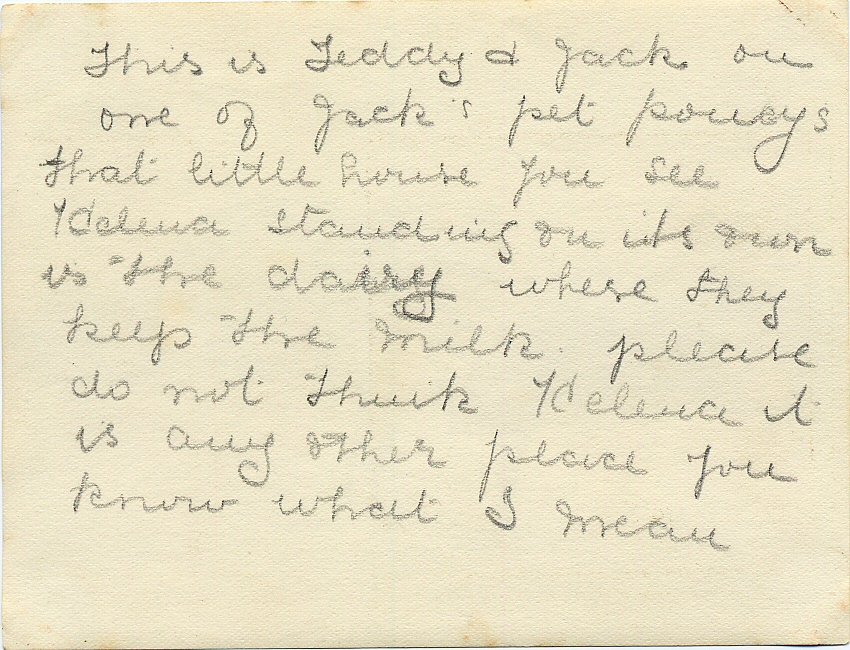 This is Teddy & Jack on
one of Jack's pet poneys
that little house you see
Helena standing on its own
is the dairy where they
keep the milk. please
do not think Helena it
is any other place you
know what I mean